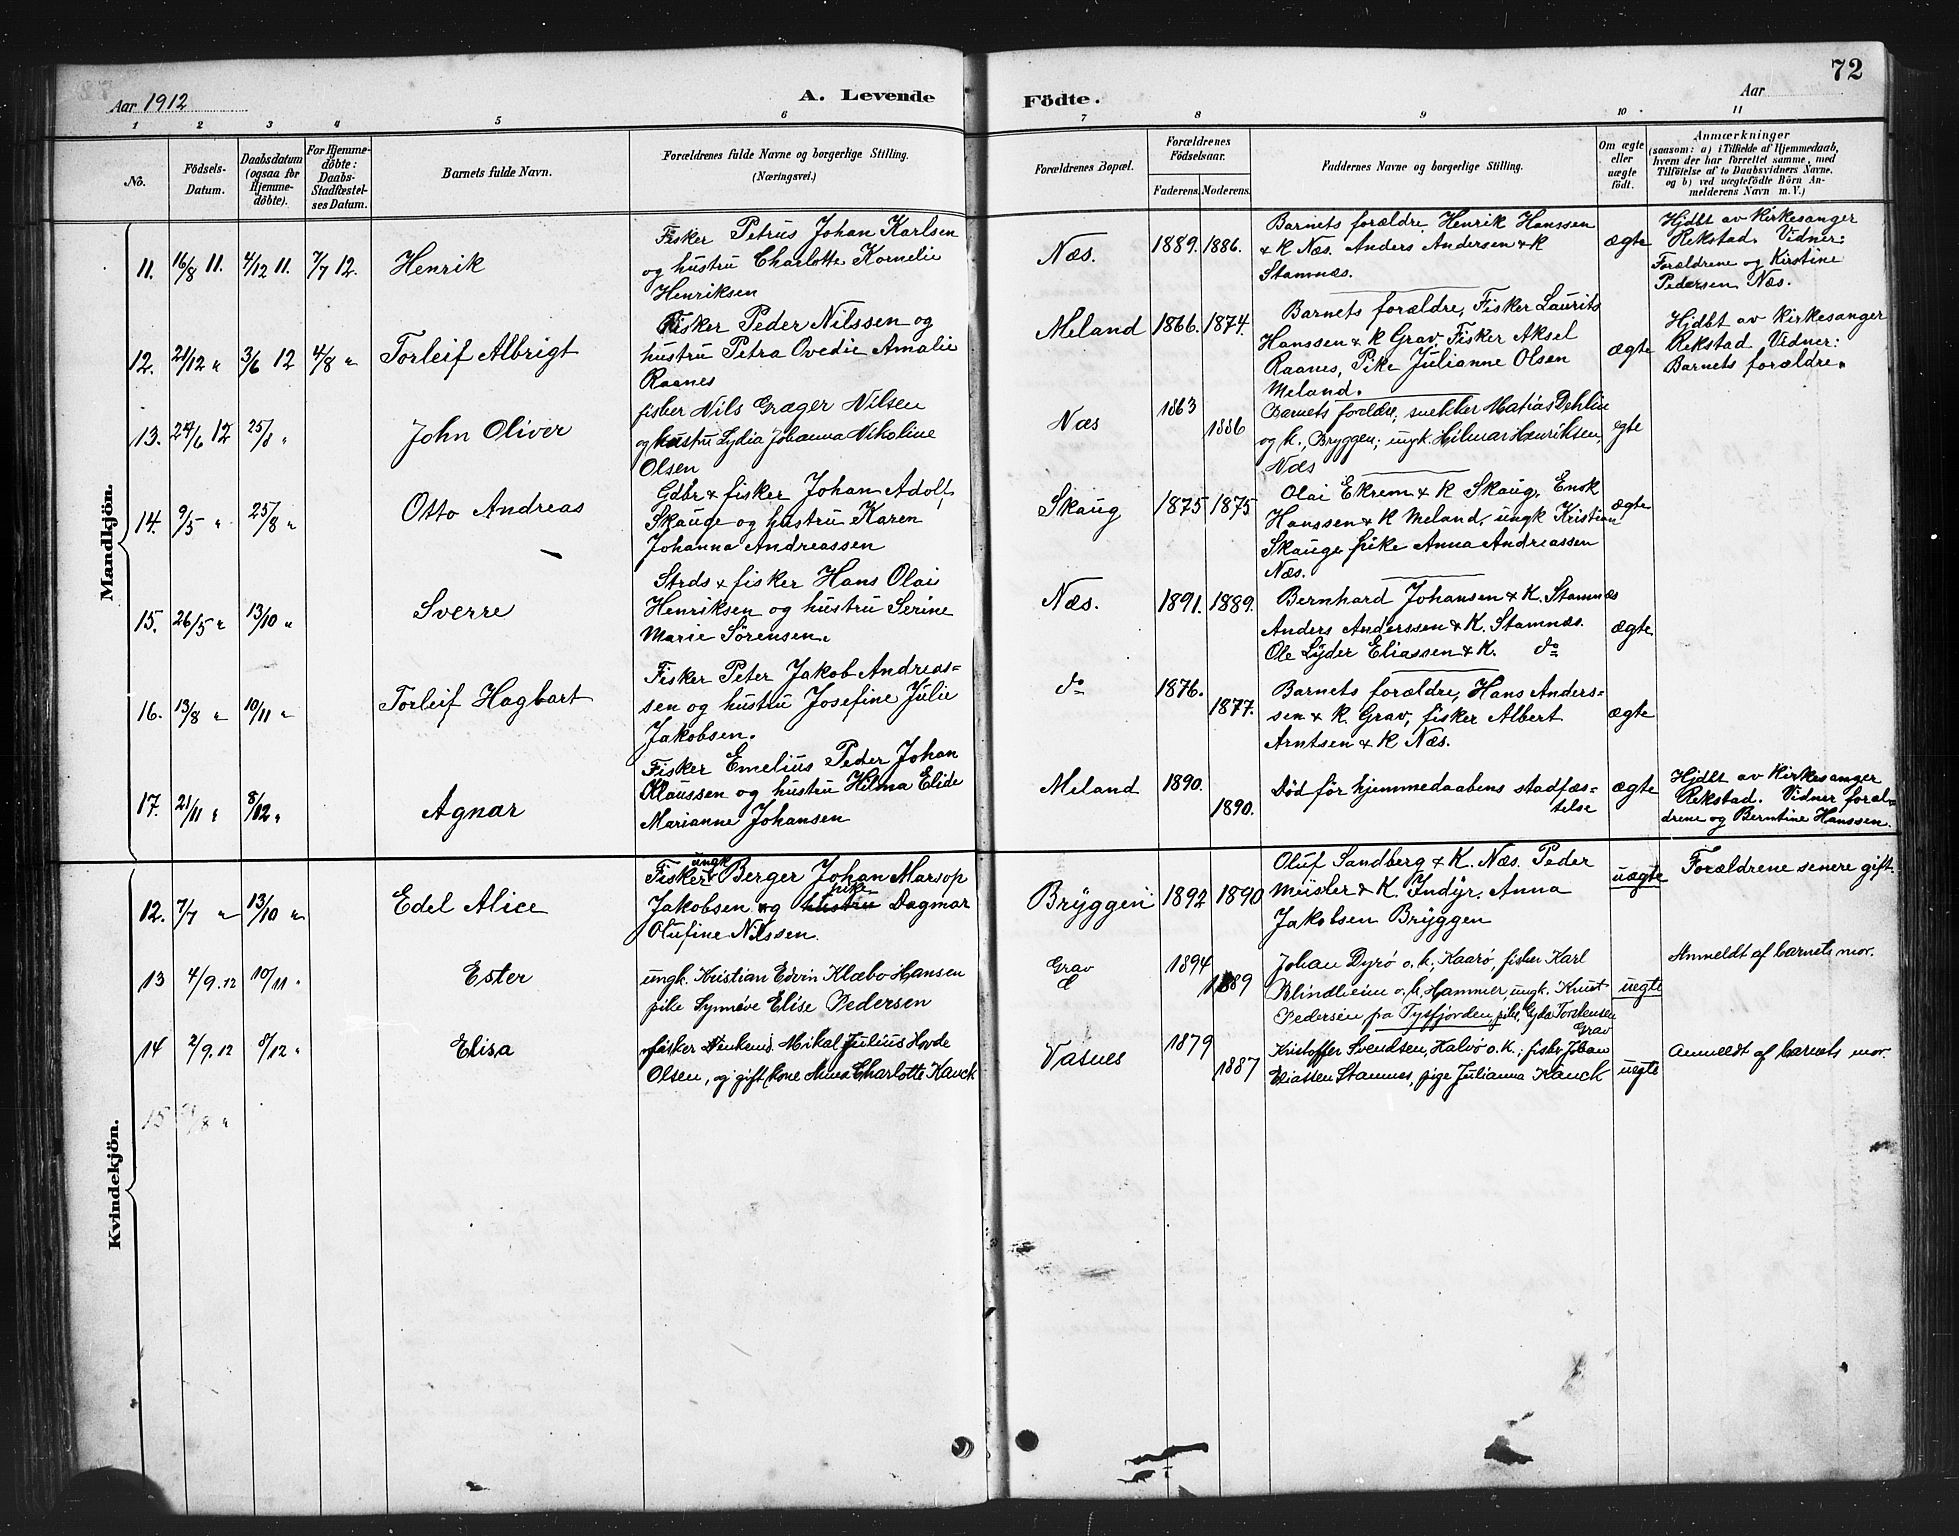 Aar 1912
A. Levende
Födte.
Aar
72
1 2 3 4 5 6 7 8 9 10 11
No.
Födsels-
Datum.
Daabsdatum
(ogsaa for
Hjemme-
döbte).
For Hjemme-
döbte:
Daabs-
Stadfæstel-
ses Datum.
Barnets fulde Navn.
Forældrenes fulde Navne og borgerlige Stilling.
(Næringsvei.)
Forældrenes Bopæl.
Forældrenes
Födselsaar.
Faderens. Moderens.
Faddernes Navne og borgerlige Stilling.
Om ægte
eller
uægte
födt.
Anmærkninger
(saasom: a) i Tilfælde af Hjemmedaab,
hvem der har forrettet samme, med
Tilföielse af to Daabsvidners Navne,
og b) ved uægtefödte Börn An-
melderens Navn m. V.)
Mandkjön.
11. 16/8 11. 4/12 11. 7/7 12. Henrik
Fisker Petrus Johan Karlsen
og hustru Charlotte Kornelie
Henriksen
Næs. 1889. 1886.
Barnets forældre, Henrik Hanssen
& K Næs. Anders Andersen & K
Stamnæs.
ægte
Hjdbt av Kirkesanger
Rekstad. Vidner:
Forældrene og Kirstine
Pedersen Næs.
12. 21/12 " 3/6 12 4/8 " Torleif Albrigt
Fisker Peder Nilssen og
hustru Petra Ovedie Amalie
Raanes
Meland 1866. 1874.
Barnets forældre, Fisker Laurits
Hanssen & K Grav, Fisker Aksel
Raanes, Pike Julianne Olsen
Meland.
ægte
Hjdbt av Kirkesanger
Rekstad Vidner:
Barnets forældre.
13. 24/6 12 25/8 " John Oliver
fisker Nils Græger Nilsen
og hustru Lydia Johanna Nikoline
Olsen
Næs 1863 1886
Barnets foreldre, snekker Matias Dehlin
og k., Bryggen; ungk. Hilmar Henriksen,
Næs
egte
14. 9/5 " 25/8 " Otto Andreas
Gdbr & fisker Johan Adolf
Skauge og hustru Karen
Johanna Andreassen
Skaug 1875 1875
Olai Ekrem & K Skaug, Enok
Hanssen & K Meland, ungk Kristian
Skauge pike Anna Andreassen
Næs.
ægte
15. 26/5 " 13/10 " Sverre
Strds & fisker Hans Olai
Henriksen og hustru Serine
Marie Sörensen.
Næs. 1891. 1889.
Bernhard Johansen & K. Stamnæs
Anders Anderssen & K. Stamnæs.
Ole Lyder Eliassen & K. do
ægte
16. 13/8 " 10/11 " Torleif Hagbart
Fisker Peter Jakob Andreas-
sen og hustru Josefine Julie
Jakobsen.
do 1876. 1877.
Barnets forældre, Hans Anders-
sen & K. Grav, fisker Albert
Arntsen & K Næs.
ægte
17. 21/11 " 8/12 " Agnar
Fisker Emelius Peder Johan
Klaussen og hustru Hilma Elide
Marianne Johansen
Meland 1890. 1890.
Död för hjemmedaabens stadfæs-
telse
ægte
Hjdbt av Kirkesanger
Rekstad. Vidner foræl-
drene og Berntine Hanssen.
Kvindekjön.
12. 7/7 " 13/10 " Edel Alice
ungk
Fisker & Berger Johan Marsop
pike
Jakobsen og hustru Dagmar
Olufine Nilssen.
Bryggen 1892 1890
Oluf Sandberg & K. Næs. Peder
& K. Indyr. Anna
Jakobsen Bryggen
uægte
Forældrene senere gift.
13 4/9.12 10/11 " Ester
ungk. Kristian Edvin Klæbo Hansen
pike Synnöve Elise Pedersen
Grav 1894 1889
Johan Dyrö o. k., Kaarö, fisker Karl
Blindheim o. k. Hammer, ungk. Knut
Pedersen fra Tysfjorden, pike, Gyda Torstensen
Grav
uegte
Anmeldt af barnets mor.
14 2/9.12 8/12 " Elisa
fisker Mikal Julius Hovde
Olsen, og gift kone Anna Charlotte Kanck
Vasnes 1879 1887
Kristoffer Svendsen, Halvö o. k.; fisker Johan
Eliassen Stamnes, pige Julianna Kanck
uegte
Anmeldt af barnets mor.
15 /8 "